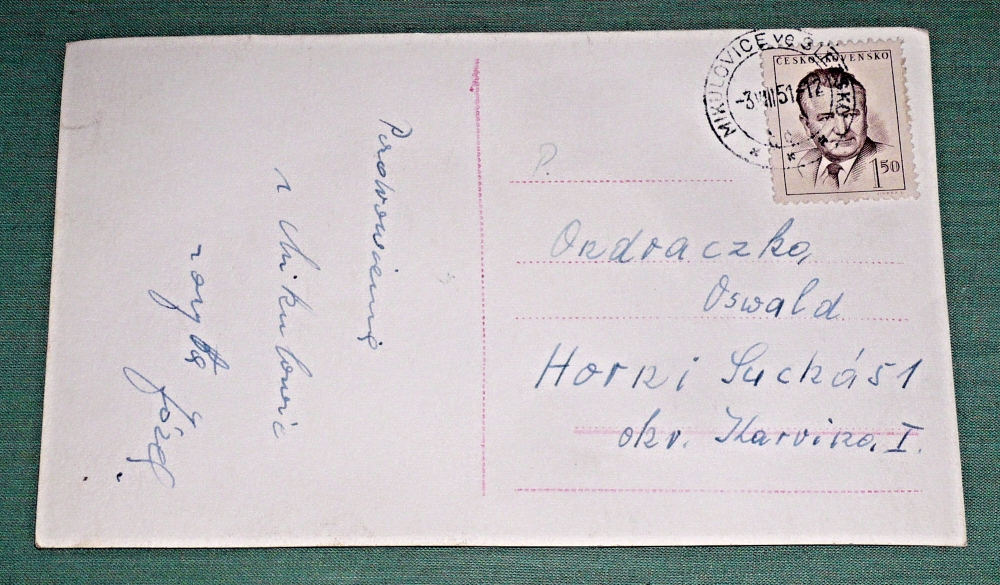 Pozdrowienia
z Mikulowic
Józef
MIKULOVICE ve SLEZSKU
-3.VIII.51-12
ČESKOSLOVENSKO
1 50
P.
Ondraczka
Oswald.
Horni Suchá 51
okr. Karvina I.